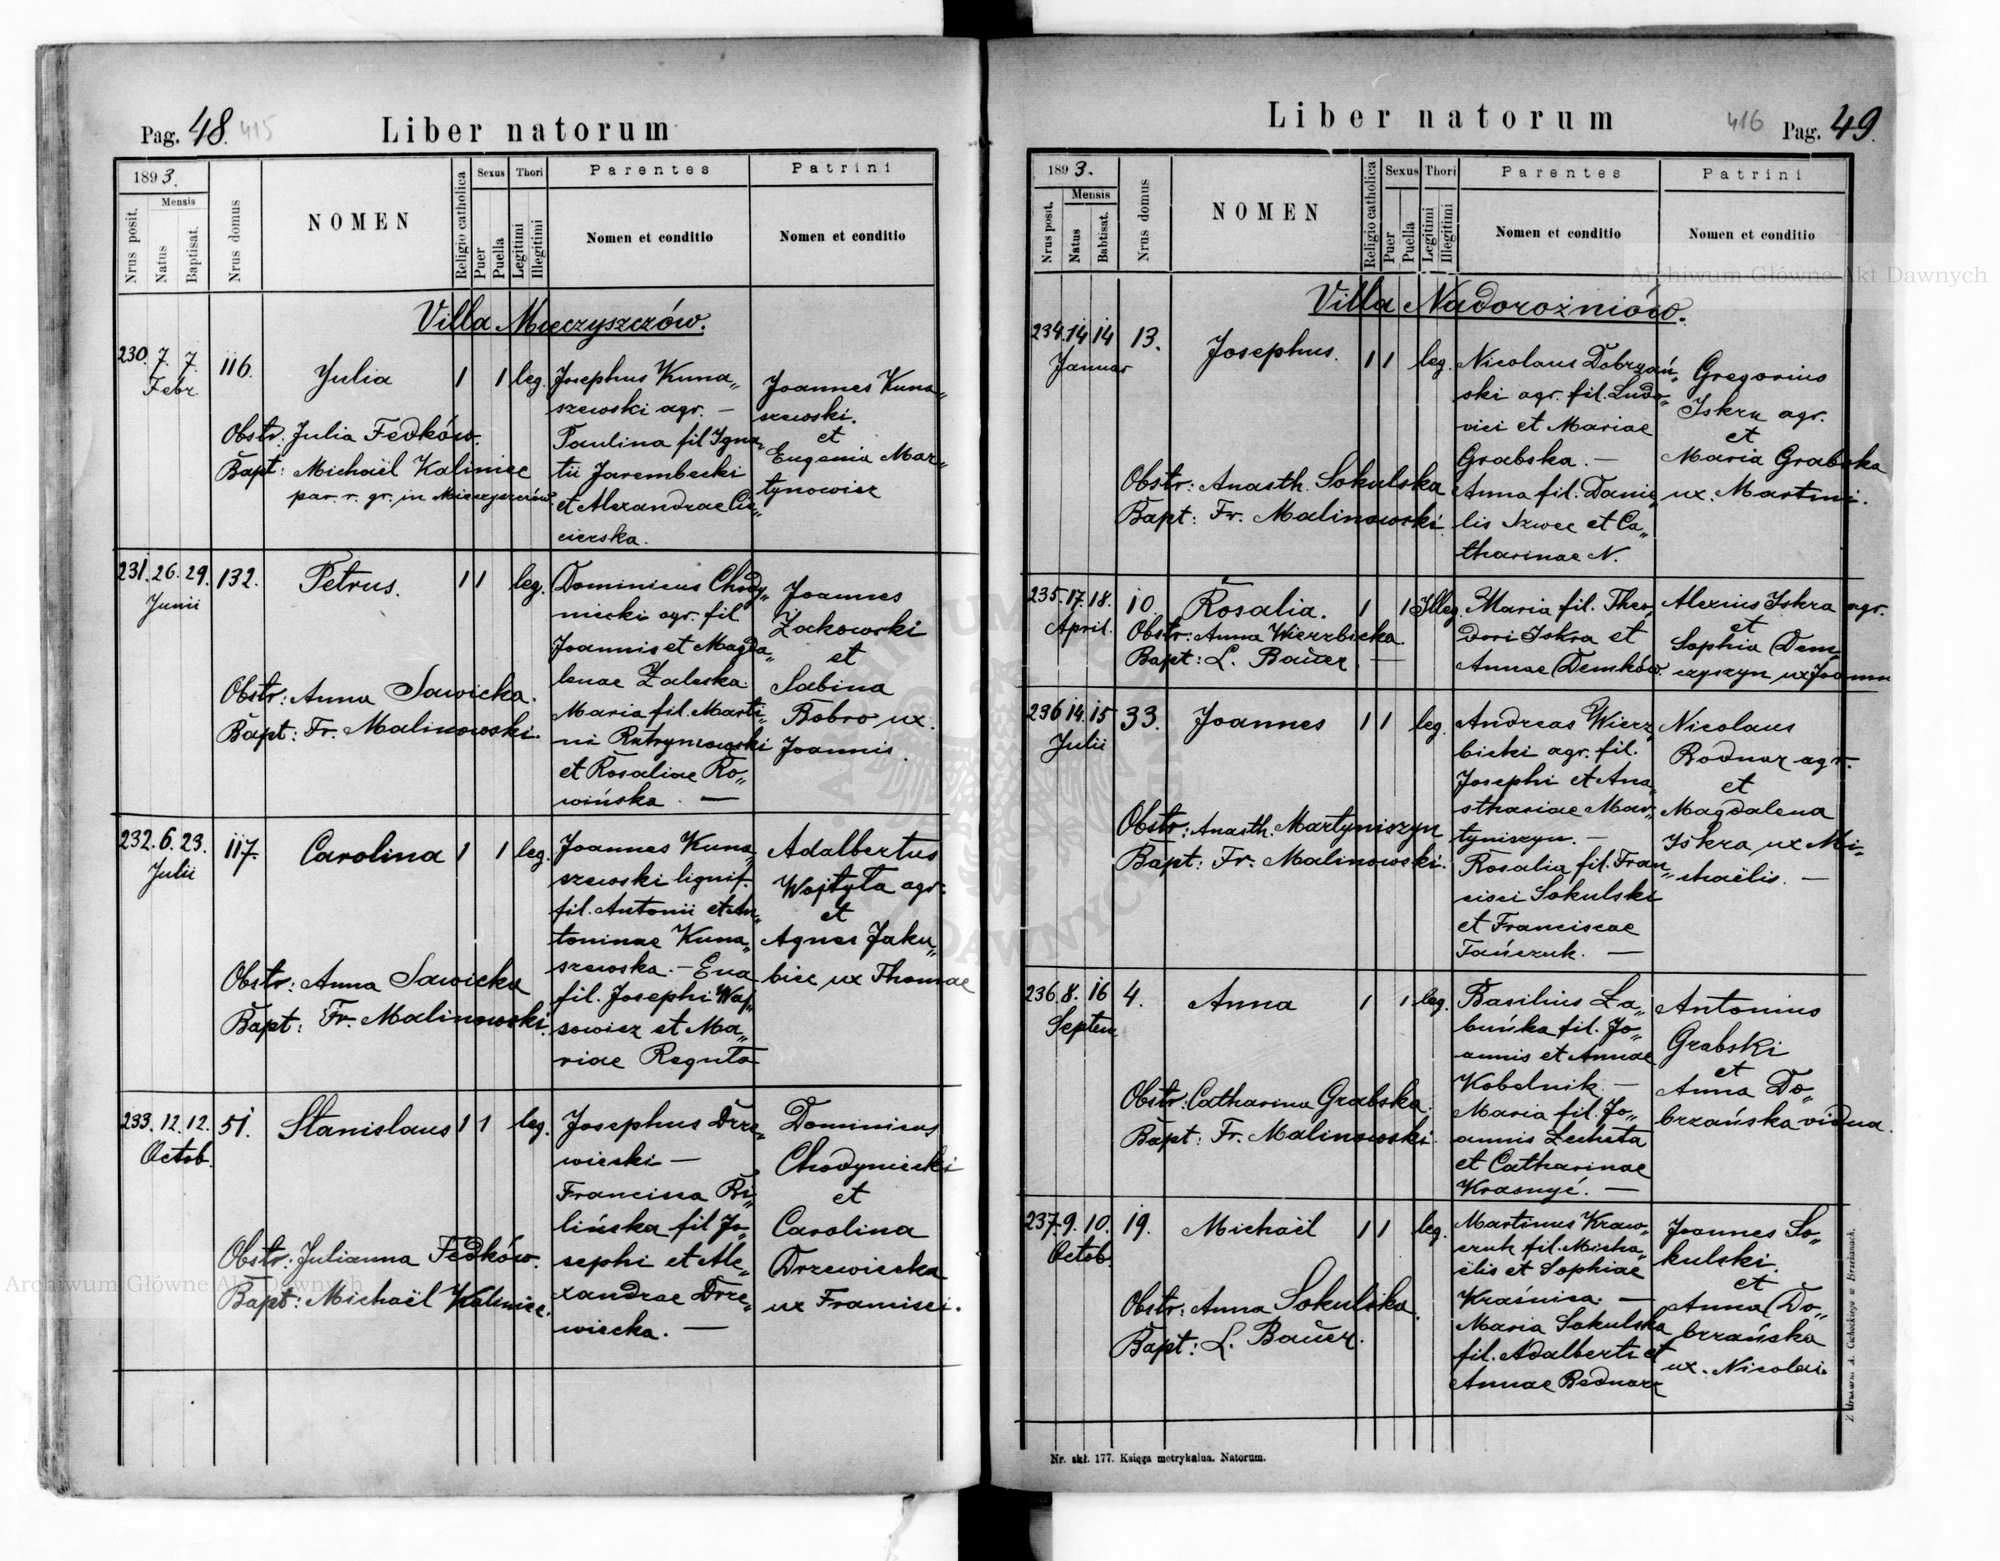 Pag. 48. 415
Liber natorum
1893.
Nrus posit.
Mensis
Natus
Baptisat.
Nrus domus
NOMEN
Religio catholica
Sexus
Puer
Puella
Thori
Legitimi
Illegitimi
Parentes
Nomen et conditio
Patrini
Nomen et conditio
Villa Mieczyszczów.
230. 7. 7. 116. Julia 1 1 leg.
Febr.
Obstr: Julia Fedków.
Bapt: Michaël Kaliniec
par. r. gr. in Mieczyszczów
Josephus Kuna„
szewski agr. —
Paulina fil Igna„
tii Jarembecki
et Alexandrae Ci„
cierska.
Joannes Kuna„
szewski.
et
Eugenia Mar„
tynowicz
231. 26. 29. 132. Petrus. 1 1 leg.
Junii
Obstr: Anna Sawicka.
Bapt: Fr. Malinowski.
Dominicus Chody„
niecki agr. fil
Joannis et Magda„
lenae Zaleska.
Maria fil. Marti„
ni
et Rosaliae Ro„
wińska. —
Joannes
Żakowski
et
Sabina
Bobro ux.
Joannis.
232. 6. 23. 117. Carolina 1 1 leg.
Julii
Obstr: Anna Sawicka
Bapt: Fr. Malinowski.
Joannes Kuna„
szewski lignif.
fil. Antonii et An„
toninae Kuna„
szewska. — Eva
fil. Josephi Waj„
sowicz et Ma„
riae Reguła
Adalbertus
Wojtyła agr.
et
Agnes Jaku„
biec ux Thomae
233. 12. 12. 51. Stanislaus 1 1 leg.
Octob.
Obstr: Julianna Fedków.
Bapt: Michaël Kaliniec.
Josephus Drze„
wiecki —
Francisca Bi„
lińska fil Jo„
sephi et Ale„
xandrae Drze„
wiecka. —
Dominicus
Chodyniecki
et
Carolina
Drzewiecka
ux Francisci.
Liber natorum
416 Pag. 49.
1893.
Nrus posit.
Mensis
Natus
Babtisat.
Nrus domus
NOMEN
Religio catholica
Sexus
Puer
Puella
Thori
Legitimi
Illegitimi
Parentes
Nomen et conditio
Patrini
Nomen et conditio
Archiwum Główne Akt Dawnych
Villa Nadorożniów.
234. 14 14 13. Josephus. 1 1 leg.
Januar
Obstr: Anasth. Sokulska
Bapt: Fr. Malinowski.
Nicolaus Dobrzań„
ski agr. fil. Ludo„
vici et Mariae
Grabska. —
Anna fil. Danie„
lis Szwec et Ca„
tharinae N.
Gregorius
Iskra agr.
et
Maria Grabska
ux. Martini.
235. 17. 18. 10. Rosalia. 1 1 Illeg.
April.
Obstr: Anna Wierzbicka.
Bapt: L. Bauer. —
Maria fil. Theo„
dori Iskra et
Annae Demków.
Alexius Iskra agr.
et
Sophia Dem„
czyszyn ux Joannis
236 14. 15 33. Joannes 1 1 leg.
Julii
Obstr: Anasth. Martyniszyn
Bapt: Fr. Malinowski.
Andreas Wierz„
bicki agr. fil.
Josephi et Ana„
sthasiae Mar„
tyniszyn. —
Rosalia fil. Fran„
cisci Sokulski
et Franciscae
Tańczuk. —
Nicolaus
Bodnar agr.
et
Magdalena
Iskra ux Mi„
chaëlis. —
236. 8. 16 4. Anna 1 1 leg.
Septem
Obstr: Catharina Grabska.
Bapt: Fr. Malinowski.
Basilius Ła„
buńska fil. Jo„
annis et Annae
Kobelnik. —
Maria fil. Jo„
annis Lechota
et Catharinae
Krasnyé. —
Antonius
Grabski
et
Anna Do„
brzańska vidua.
237. 9. 10. 19. Michaël 1 1 leg.
Octob.
Obstr: Anna Sokulska.
Bapt: L. Bauer.
Martinus Kraw„
czuk fil. Micha„
ëlis et Sophiae
Kraśnica. —
Maria Sokulska
fil. Adalberti et
Annae Bednarz
Joannes So„
kulski.
et
Anna Do„
brzańska
ux. Nicolai.
Archiwum Główne Akt Dawnych
Z drukarni A. Cichockiego w Brzeżanach.
Nr. skł. 177. Księga metrykalna. Natorum.